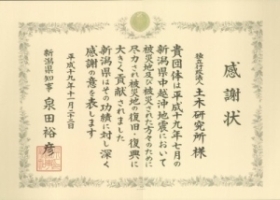 感謝状
独立行政法人 土木研究所 様
貴団体は平成十九年七月の
新潟県中越沖地震において
被災地及び被災された方々のために
尽力され被災地の復旧・復興に
大きく貢献されました
新潟県はその功績に対し深く
感謝の意を表します
平成十九年十一月二十六日
新潟県知事 泉田裕彦